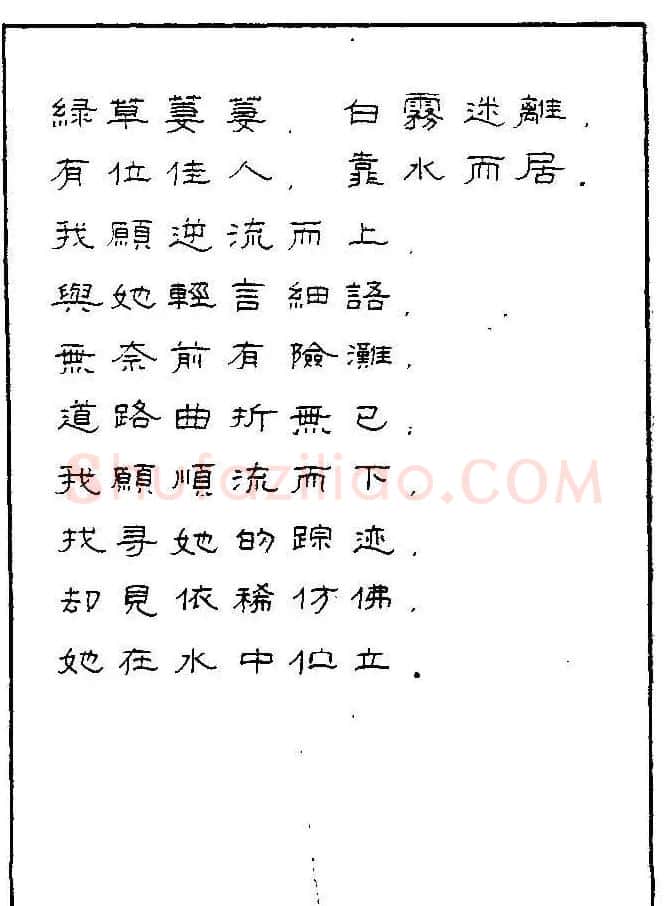 緑草萋萋，白霧迷離，
有位佳人，靠水而居．
我願逆流而上，
與她輕言細語，
無奈前有險灘，
道路曲折無已，
我願順流而下，
找寻她的踪迹，
却見依稀仿佛，
她在水中伫立．
Shufaziliao.COM